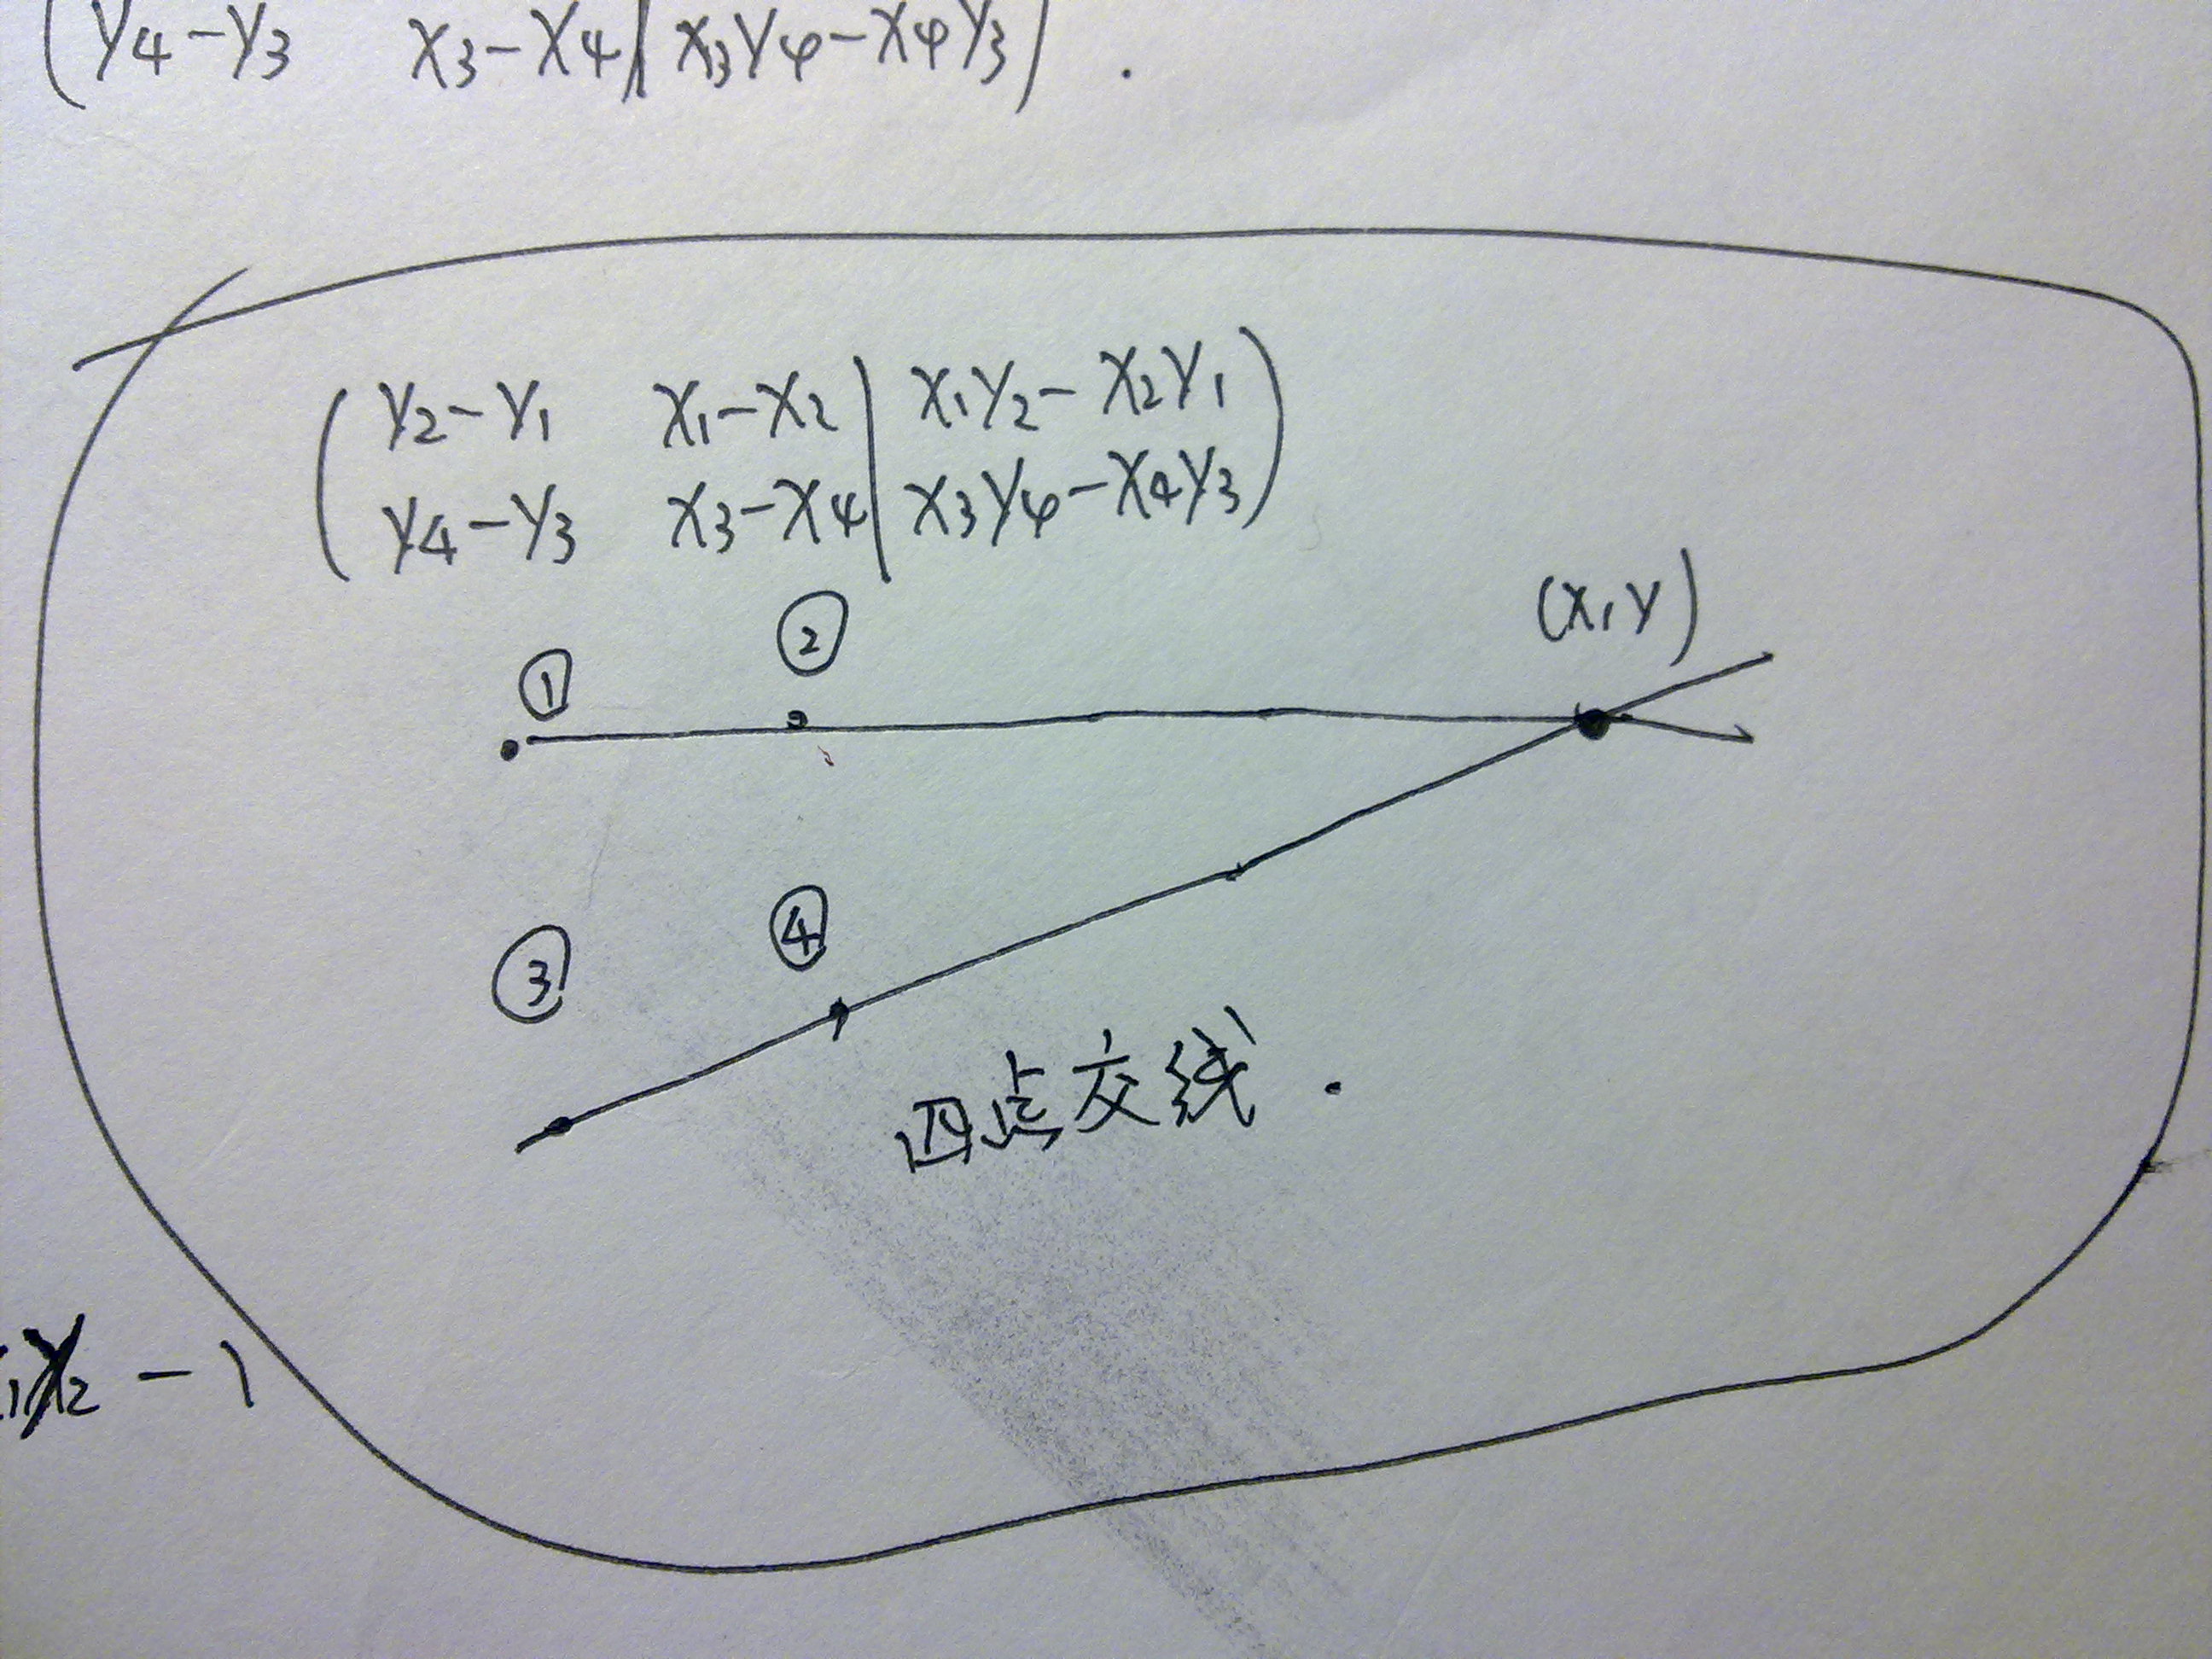 (Y4-Y3 X3-X4 | X3Y4-X4Y3) .
(Y2-Y1 X1-X2 | X1Y2-X2Y1
Y4-Y3 X3-X4 | X3Y4-X4Y3)
(X,Y)
① ②
③ ④
四点交线.
X2-1